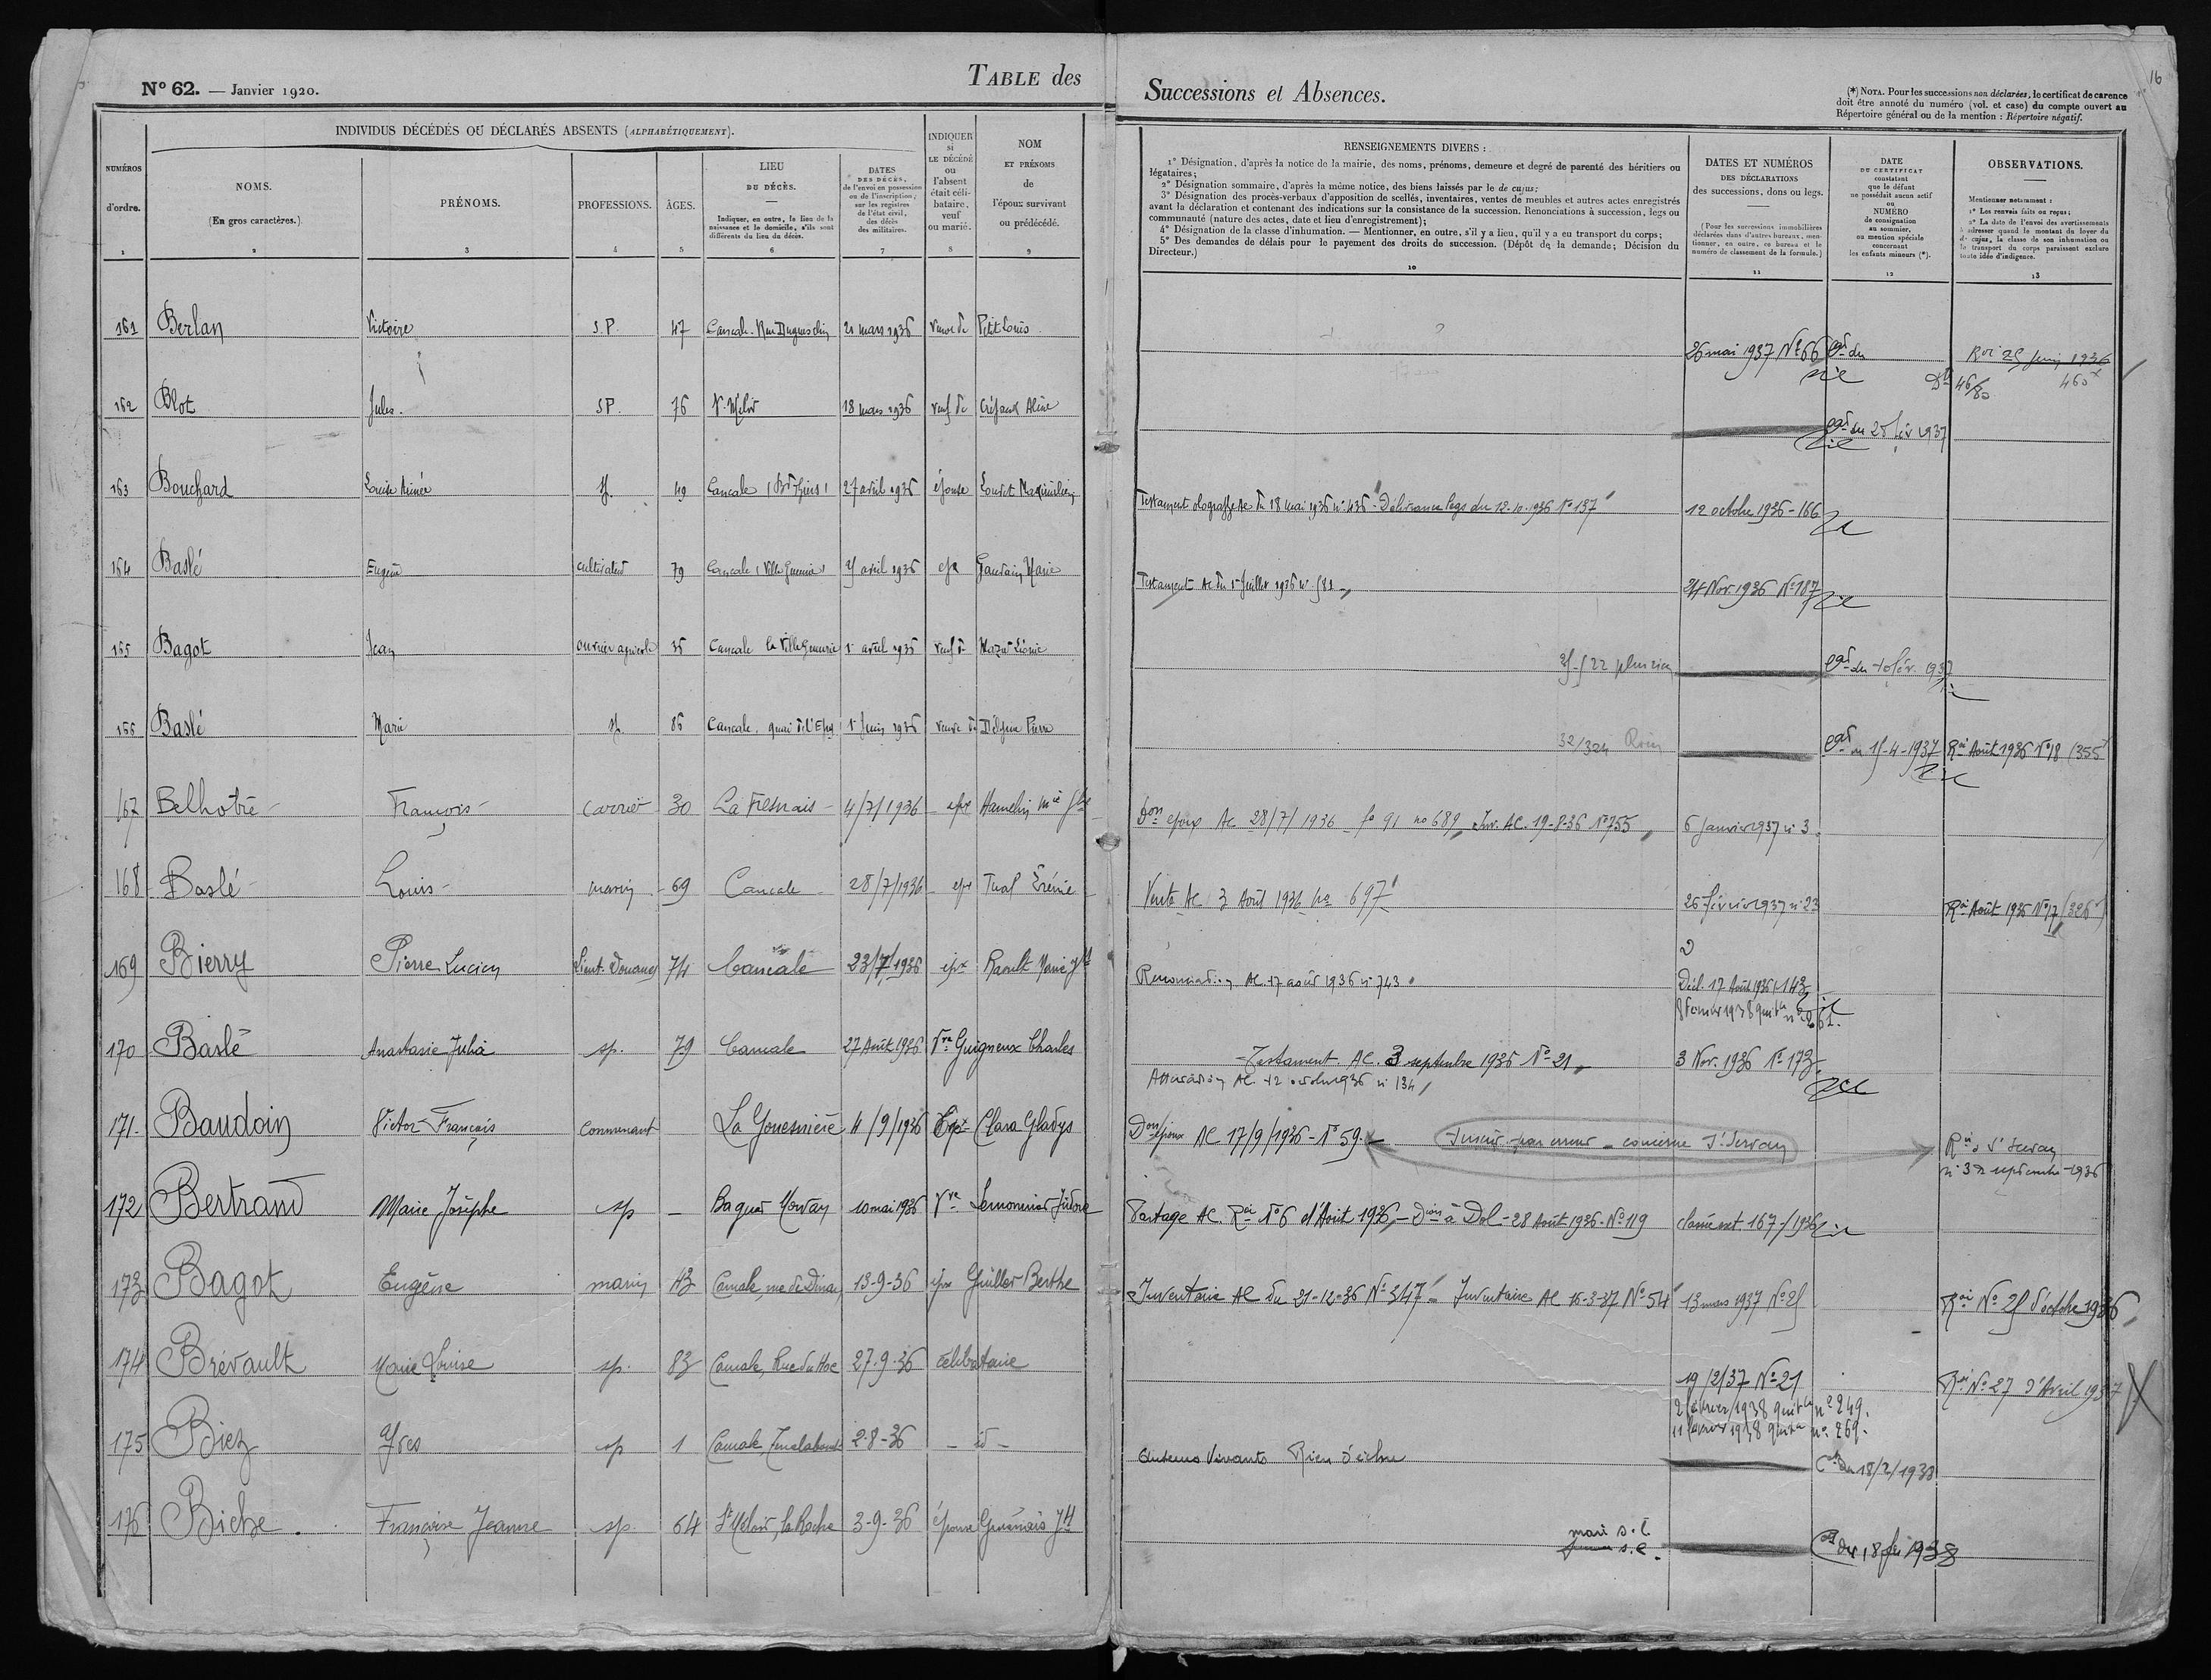 16
N° 62. — Janvier 1920.
TABLE des Successions et Absences.
(*) NOTA. Pour les successions non déclarées, le certificat de carence
doit être annoté du numéro (vol. et case) du compte ouvert au
Répertoire général ou de la mention : Répertoire négatif.
INDIVIDUS DÉCÉDÉS OU DÉCLARÉS ABSENTS (ALPHABÉTIQUEMENT).
NUMÉROS
d'ordre.
1
NOMS.
(En gros caractères.)
2
PRÉNOMS.
3
PROFESSIONS.
4
ÂGES.
5
LIEU
DU DÉCÈS.
Indiquer, en outre, le lieu de la
naissance et le domicile, s'ils sont
différents du lieu du décès.
6
DATES
DES DÉCÈS,
de l'envoi en possession
ou de l'inscription,
sur les registres
de l'état civil,
des décès
des militaires.
7
INDIQUER
si
LE DÉCÉDÉ
ou
l'absent
était céli-
bataire,
veuf
ou marié.
8
NOM
ET PRÉNOMS
de
l'époux survivant
ou prédécédé.
9
RENSEIGNEMENTS DIVERS :
1° Désignation, d'après la notice de la mairie, des noms, prénoms, demeure et degré de parenté des héritiers ou
légataires;
2° Désignation sommaire, d'après la même notice, des biens laissés par le de cujus;
3° Désignation des procès-verbaux d'apposition de scellés, inventaires, ventes de meubles et autres actes enregistrés
avant la déclaration et contenant des indications sur la consistance de la succession. Renonciations à succession, legs ou
communauté (nature des actes, date et lieu d'enregistrement);
4° Désignation de la classe d'inhumation. — Mentionner, en outre, s'il y a lieu, qu'il y a eu transport du corps;
5° Des demandes de délais pour le payement des droits de succession. (Dépôt de la demande; Décision du
Directeur.)
10
DATES ET NUMÉROS
DES DÉCLARATIONS
des successions, dons ou legs.
(Pour les successions immobilières
déclarées dans d'autres bureaux, men-
tionner, en outre, ce bureau et le
numéro de classement de la formule.)
11
DATE
DU CERTIFICAT
constatant
que le défunt
ne possédait aucun actif
ou
NUMÉRO
de consignation
au sommier,
ou mention spéciale
concernant
les enfants mineurs (*).
12
OBSERVATIONS.
Mentionner notamment :
1° Les renvois faits ou reçus;
2° La date de l'envoi des avertissements
à adresser quand le montant du loyer du
de cujus, la classe de son inhumation ou
le transport du corps paraissent exclure
toute idée d'indigence.
13
161 Berlan Victoire S.P. 47 Cancale. Rue Duguesclin 21 mars 1936 veuve de Petit Louis
26 mai 1937 N° 66 du Roi 25 Juin 1936
46/80 460
162 Blot Jules. SP. 76 18 mars 1936 veuf de Aline
du 25 fév 1937
163 Bouchard Louise Aimée 49 Cancale 27 avril 1936 épouse Louvet Maximilien
Testament olographe Ac du 18 mai 1936 n° 436 - Délivrance legs du 12-10-1936 N° 137 12 octobre 1936 - 166
164 Baslé Eugène cultivateur 79 Cancale avril 1936 epx Gaudain Marie
Testament Ac du 1er Juillet 1936 24 Nov. 1936 N° 187
165 Bagot Jean ouvrier agricole 35 Cancale 1er avril 1936 veuf de Léonie
du fév. 1937
166 Baslé Marie 86 Cancale, quai 1er Juin 1936 veuve de Delépine Pierre
32/324 15-4-1937 Roi Août 1936 N° 18 (355)
167 Belhotre François carrier 30 La Fresnais 4/7/1936 epx Hamelin
Don epoux Ac 28/7/1936 f° 91 no 689, Inv. AC. 19-8-36 N° 755, 6 Janvier 1937 n° 3
168 Baslé Louis marin 69 Cancale 28/7/1936 epx Tual Irénée
Vente Ac 3 Août 1936 no 697 26 février 1937 n° 23 Roi Août 1936 N° 17 (326)
169 Bierry Pierre Lucien Lieut. Douanes 74 Cancale 23/7/1936 epx Raoult Marie
Renonciation AC. 17 août 1936 n° 743 Décl. 17 Août 1936 - 143
Février 1938 n° 261.
170 Baslé Anastasie Julia sp. 79 Cancale 27 Août 1936 Vve Guigneux Charles
Testament. AC. 3 septembre 1936 N° 21, 3 Nov. 1936 N° 173.
AC. 12 octobre 1936 n° 134,
171. Baudoin Victor François commerçant La Gouesnière 4/9/1936 Epx Clara Gladys
Don époux AC 17/9/1936 - N° 59 - Inscrit par erreur - concerne St Servan Roi à St Servan
n° 32 septembre 1936
172 Bertrand Marie Josèphe sp - Baguer Morvan 10 mai 1936 Vve Lemonnier Isidore
Partage AC. Roi N° 6 d'Août 1936, - Don à Dol - 28 Août 1936 - N° 119 classemt 167/1936
173 Bagot Eugène marin 43 Cancale, rue de Dinan 13-9-36 épx Guillier Berthe
Inventaire AC du 21-12-36 N° 347 - Inventaire AC 16-3-37 N° 54 13 mars 1937 N° 25 Roi N° 25 d'octobre 1936,
174 Brévault Marie Louise sp. 83 Cancale, 27-9-36 célibataire
19/2/37 N° 21 Roi N° 27 d'Avril 1937
2 février 1938 n° 249.
11 février 1938 n° 269.
175 Biez Yves sp 1 Cancale 2-8-36 - id -
Auteurs vivants Rien d'échu 18/2/1938
176 Biche. Françoise Jeanne sp. 64 St Méloir, la Roche 3-9-36 épouse
mari s.c. du 18 fév 1938
s.c.